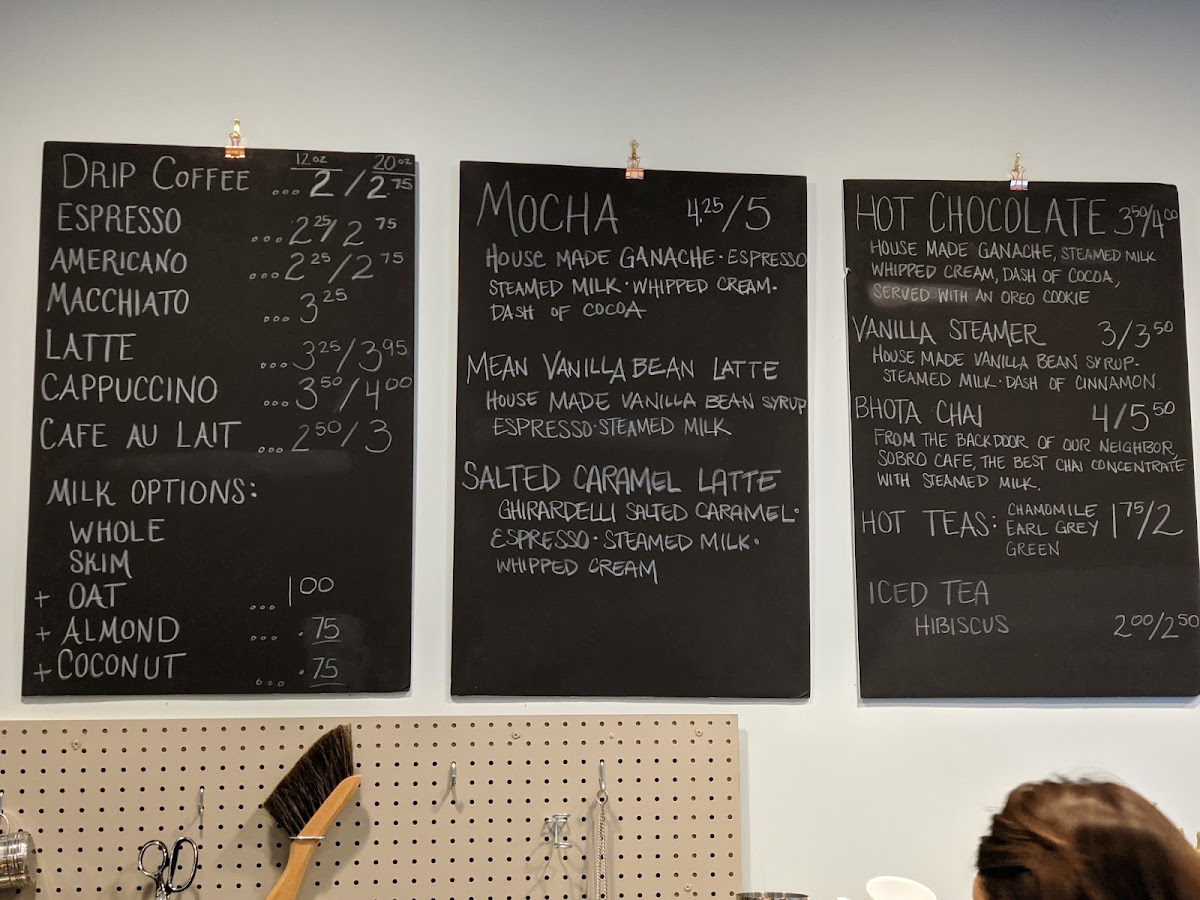 12oz 20oz
DRIP COFFEE ...2/2.75
ESPRESSO ...2.25/2.75
AMERICANO ...2.25/2.75
MACCHIATO ...3.25
LATTE ...3.25/3.95
CAPPUCCINO ...3.50/4.00
CAFE AU LAIT ...2.50/3
MILK OPTIONS:
WHOLE
SKIM
+ OAT ... 1.00
+ ALMOND ... .75
+ COCONUT ... .75
MOCHA 4.25/5
HOUSE MADE GANACHE · ESPRESSO
STEAMED MILK · WHIPPED CREAM ·
DASH OF COCOA
MEAN VANILLA BEAN LATTE
HOUSE MADE VANILLA BEAN SYRUP
ESPRESSO · STEAMED MILK
SALTED CARAMEL LATTE
GHIRARDELLI SALTED CARAMEL ·
ESPRESSO · STEAMED MILK ·
WHIPPED CREAM
HOT CHOCOLATE 3.50/4.00
HOUSE MADE GANACHE, STEAMED MILK
WHIPPED CREAM, DASH OF COCOA,
SERVED WITH AN OREO COOKIE
VANILLA STEAMER 3/3.50
HOUSE MADE VANILLA BEAN SYRUP ·
STEAMED MILK · DASH OF CINNAMON
BHOTA CHAI 4/5.50
FROM THE BACKDOOR OF OUR NEIGHBOR,
SOBRO CAFE, THE BEST CHAI CONCENTRATE
WITH STEAMED MILK.
HOT TEAS: CHAMOMILE 1.75/2
EARL GREY
GREEN
ICED TEA
HIBISCUS 2.00/2.50